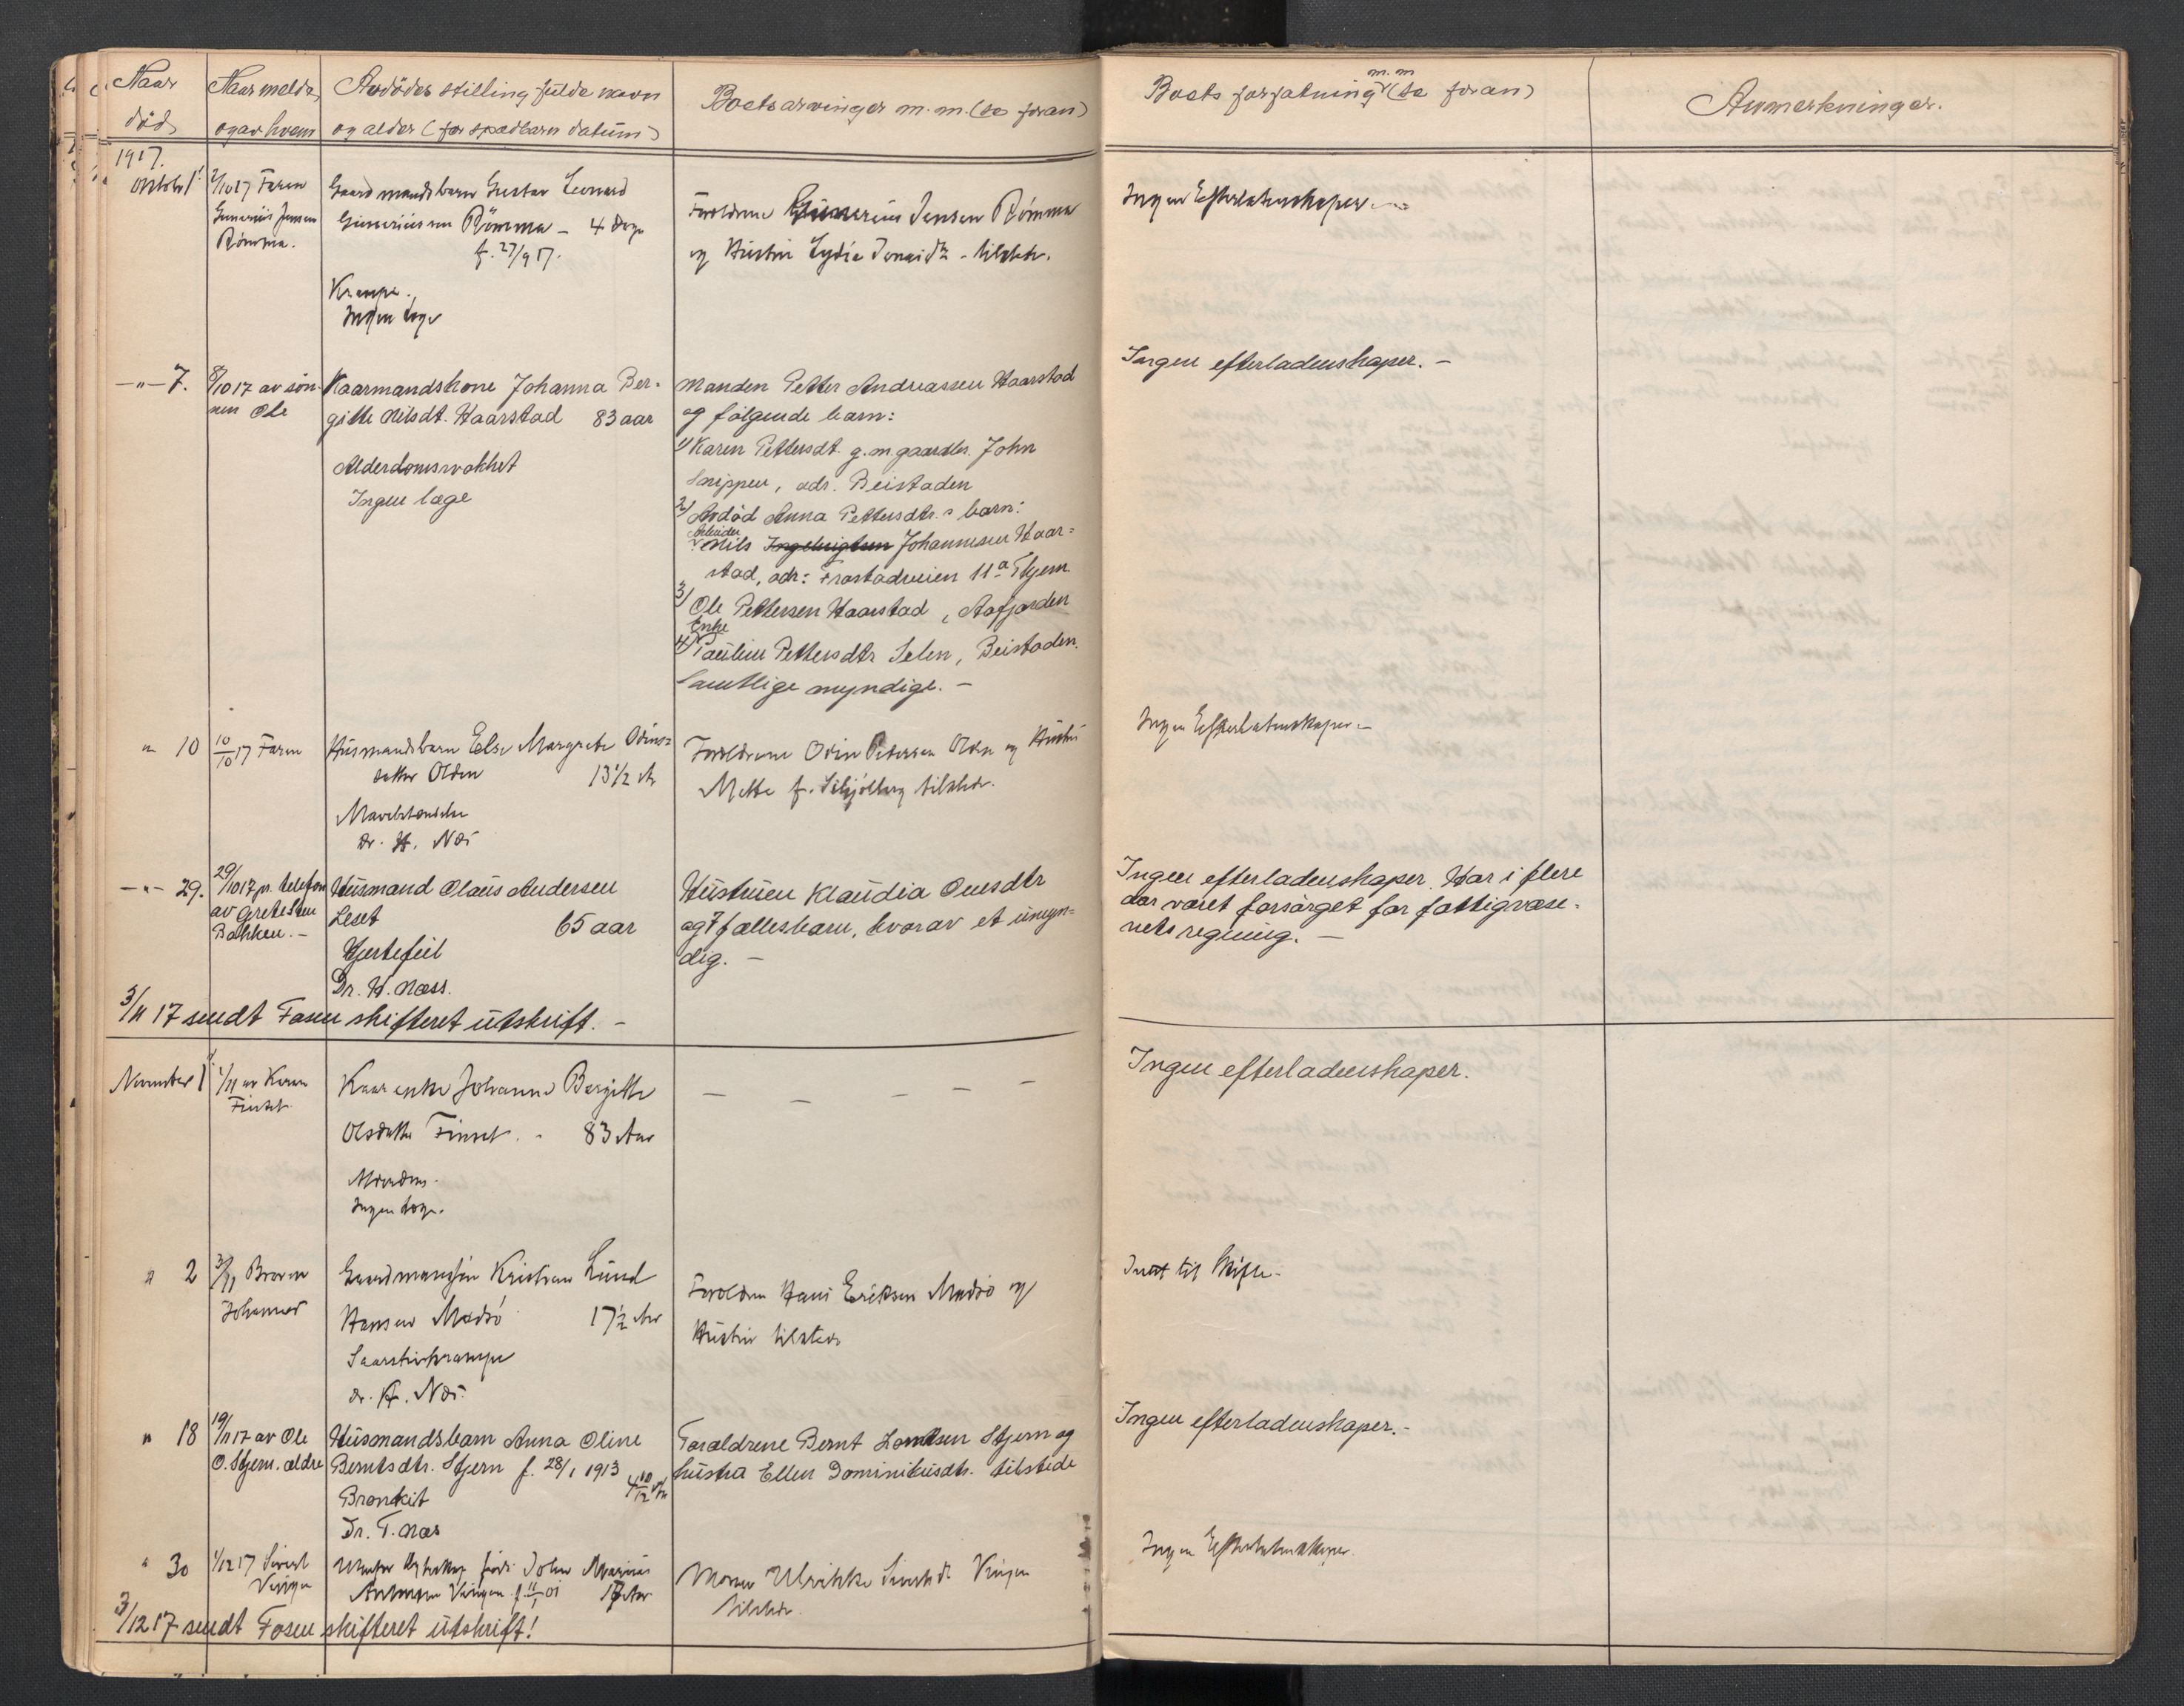 Naar
död
Naar meldt,
og av hvem
Avdödes stilling fulde navn
og alder (for spædbarn datum)
Boets arvinger m.m. (se foran)
Boets forfatning m.m (se foran)
Anmerkninger.
1917.
Oktober 1
2/10 17 Faren
Gunerius Jensen
Römma.
Gaardmandsbarn Gustav Leonard
Guneriussen Römma - 4 Dage
f. 27/9 17.
Krampe.
Ingen læge
Forældrene Gunerius Jensen Römma
og Hustru Lydia - tilstede.
Ingen Efterladenskaper
-"- 7.
8/10 17 av søn-
nen Ole
Kaarmandskone Johanna Ber-
gitte Nilsdt. Haarstad 83 aar
Alderdomssvakhet
Ingen læge
Manden Petter Andreassen Haarstad
og følgende barn:
1) Karen Pettersdt. g.m. gaardbr. John
Snippen, adr. Beistaden
2) Avdöd Anna Pettersdtr.s barn:
Arbeider
Nils Ingebrigtsen Johannesen Haar-
stad, adr: Frostadveien 11a Thjem
3) Ole Pettersen Haarstad, Aafjorden
Enke
4) Pauline Pettersdtr Selen, Beistaden.
Samtlige myndige. -
Ingen efterladenskaper. -
" 10
10/10 17 Faren
Husmandsbarn Else Margrete Odins-
datter Olden 13 1/2 År
dr. H. Næs
Forældrene Odin Petersen Olden og Hustru
Mette f. tilstede.
Ingen Efterladenskaper -
-"- 29.
29/10 17 pr. telefon
av Grete Sten
Bakken. -
Husmand Olaus Andersen
Leset 65 aar
Hjertefeil
Dr. H. Næss.
Hustruen Klaudia Onesdtr
og 7 fællesbarn, hvorav et umyn-
dig. -
Ingen efterladenskaper. Har i flere
aar været forsörget for fattigvæse-
nets regning. -
3/11 17 sendt Fosen skifteret utskrift. -
November 1
1/11 av Karen
Finset
Kaarenke Johanna Bergitte
Olsdatter Finset. - 83 Aar
Alderdom.
Ingen læge.
- - - - -
Ingen efterladenskaper.
" 2
3/11 Broren
Johannes
Gaardmandssøn Kristian Lund
Hansen Madsö 17 1/2 Aar
Saarstivkrampe
dr. H. Næs.
Forældrene Hans Eriksen Madsö og
Hustru tilstede
Intet til Skifte -
" 18
19/11 17 av Ole
O. Stjern. ældre
Husmandsbarn Anna Oline
Berntsdtr. Stjern f. 28/1 1913
4 10/12 År
Bronkit
Dr. T. Næs
Forældrene Bernt Stjern og
hustru Ellen Dominikusdtr. tilstede
Ingen efterladenskaper. -
" 30
1/12 17 Sivert
Vingen
Johan Marinus
Vingen f. 11/1 01 17 Aar
Moren Ulrikke Sivertsdt. Vingen
tilstede.
Ingen Efterladenskaper.
3/12 17 sendt Fosen skifteret utskrift!